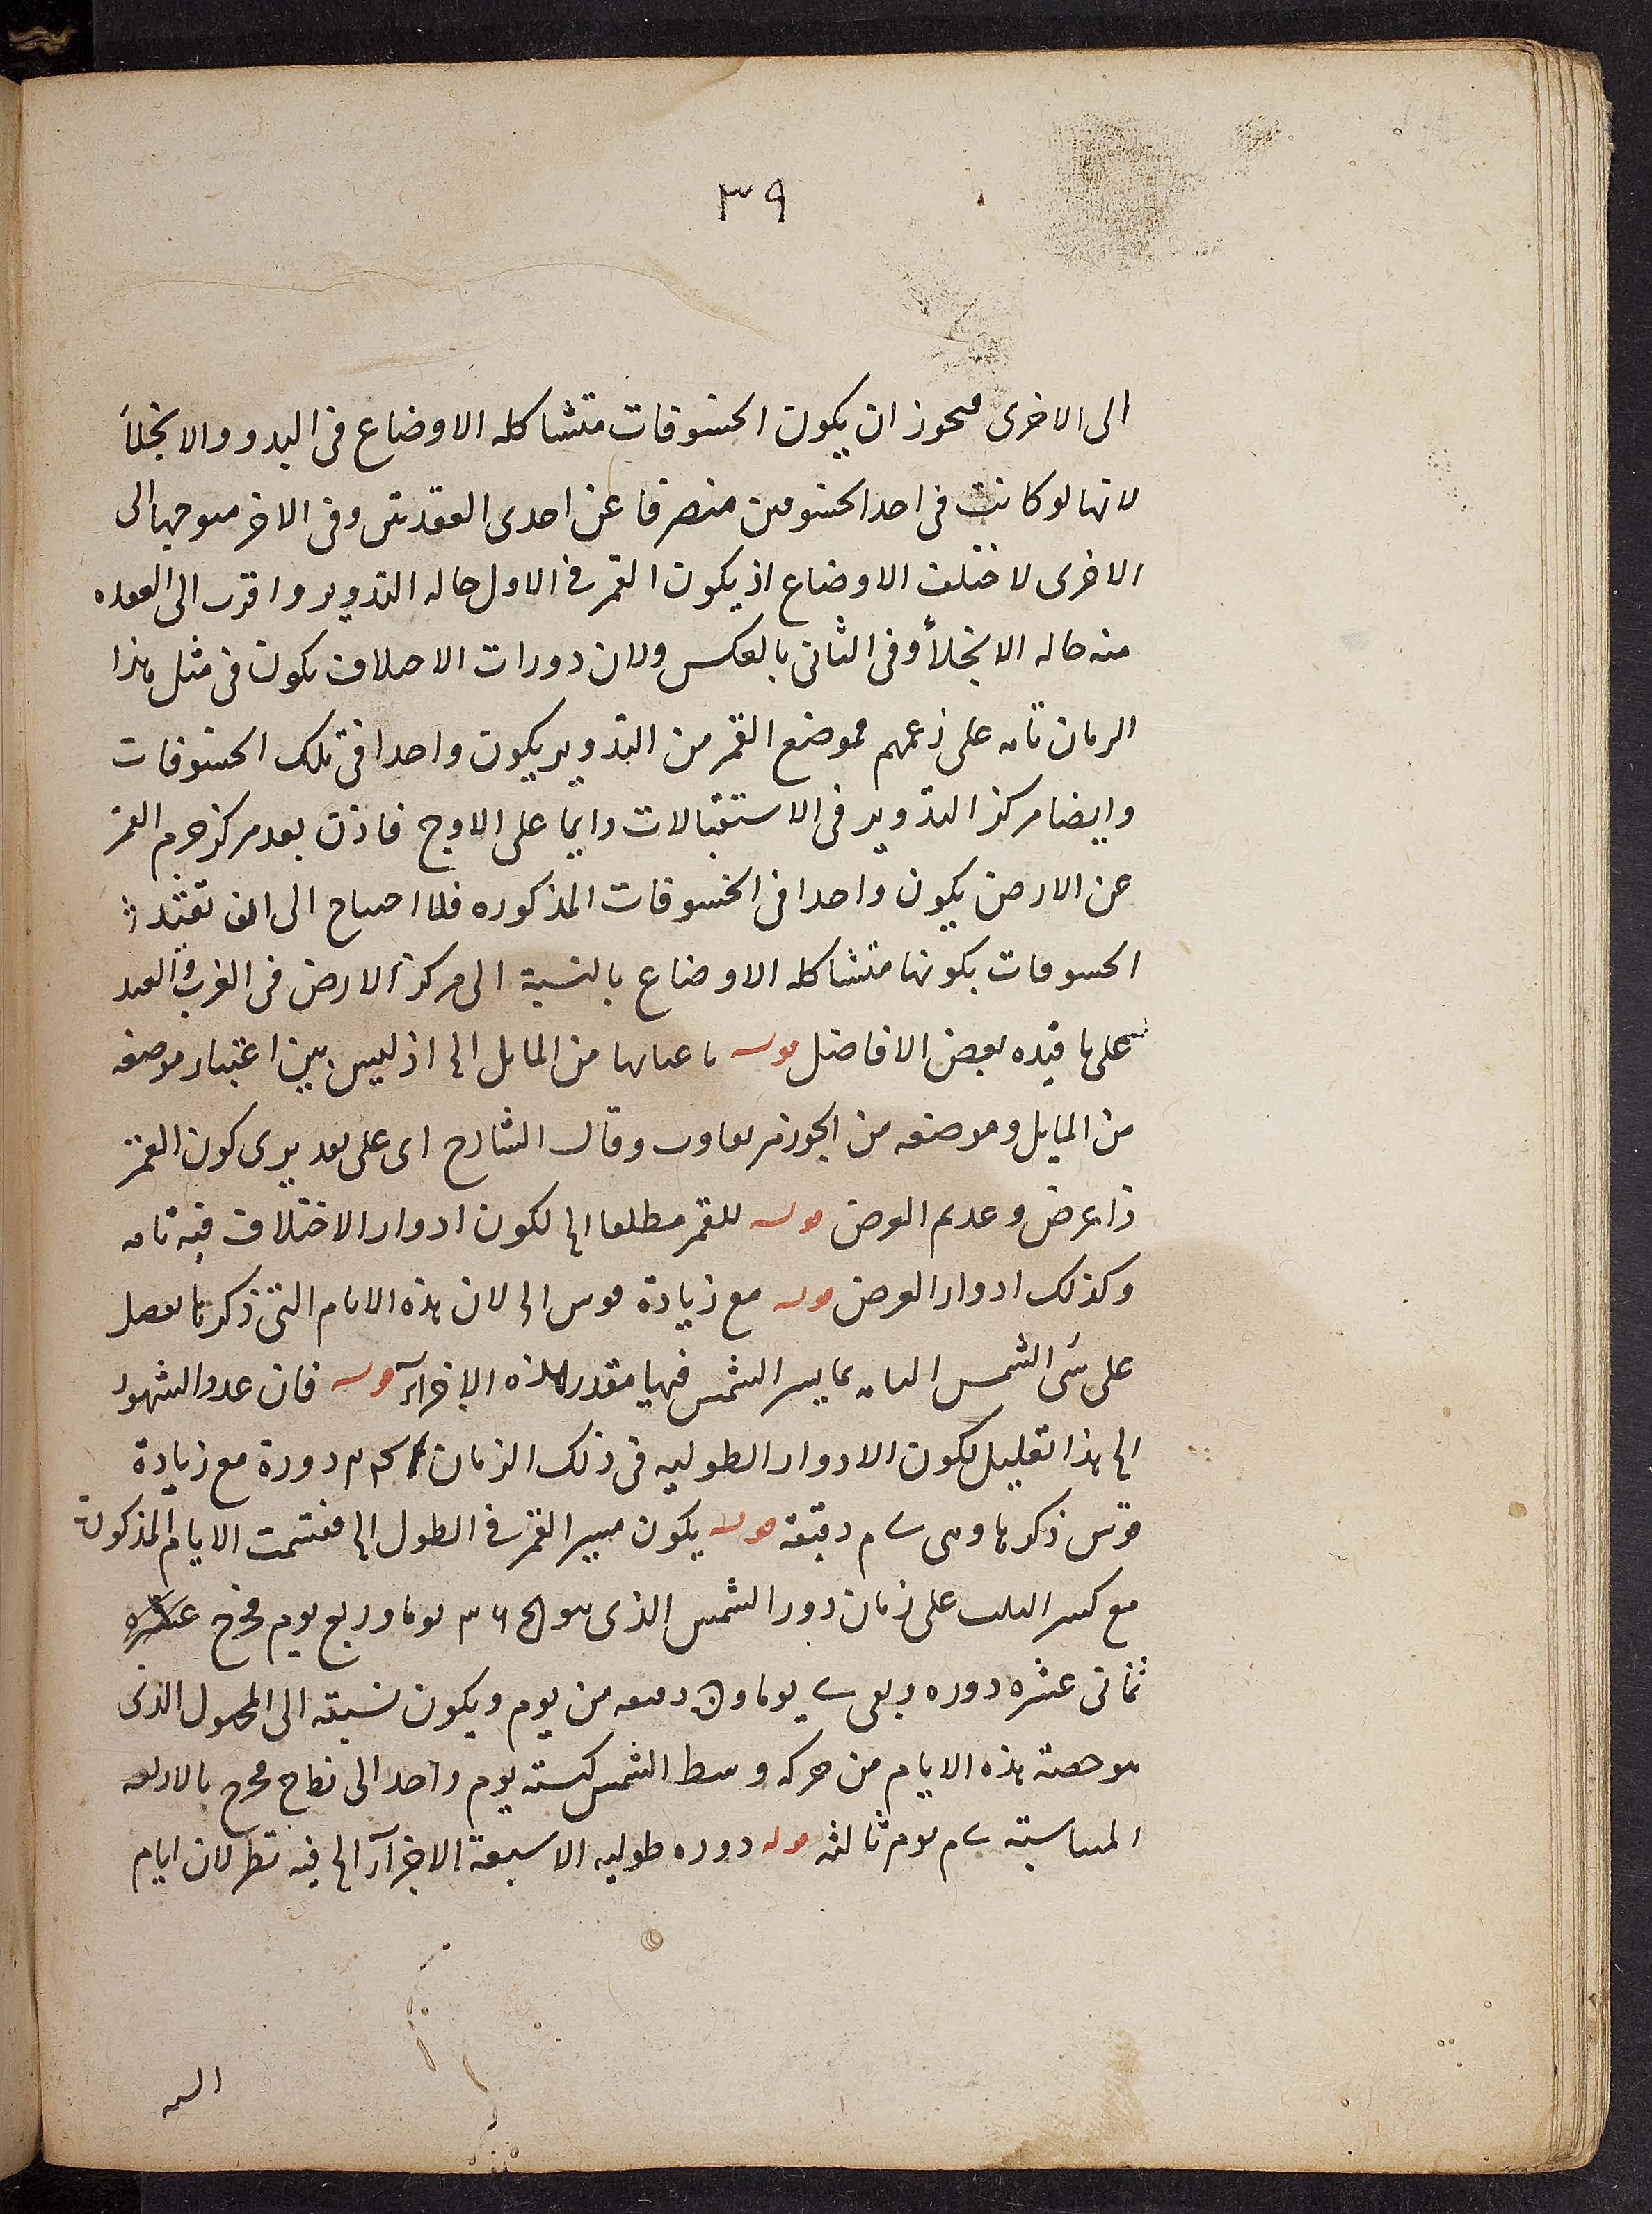 ٣٩
الى الاخرى فيجوز ان يكون الخسوفات متشاكله الاوضاع فى البدو والانجلاء
لانها لو كانت فى احد الخسوفين منصرفا عن احدى العقدتين وفى الاخر متوجها الى
الاخرى لاختلف الاوضاع اذ يكون القمر فى الاول حاله التدوير واقرب الى العقده
منه حاله الانجلاء وفى الثانى بالعكس ولان دورات الاختلاف يكون فى مثل هذا
الزمان تامه على زعمهم فموضع القمر من التدوير يكون واحدا فى تلك الخسوفات
وايضا مركز التدوير فى الاستقبالات دايما على الاوج فاذن بعد مركز جرم القمر
عن الارض يكون واحدا فى الخسوفات المذكوره فلا احتياج الى ان تقيد
الخسوفات بكونها متشاكله الاوضاع بالنسبة الى مركز الارض فى القرب والبعد
على ما قيده بعض الافاضل قوله من المايل الخ اذ ليس بين اعتبار موضعه
من المايل وموضعه من الجوزهر تفاوت وقال الشارح اى على بعد يرى كون القمر
ذا عرض وعديم العرض قوله للقمر مطلقا الخ لكون ادوار الاختلاف فيه تامه
وكذلك ادوار العرض قوله مع زيادة قوس الخ لان هذه الايام التى ذكرها يفضل
على الشمس التامه بما يسير الشمس فيها مقدر هذه الاجزاء قوله فان عدد الشهور
الخ هذا تعليل لكون الادوار الطوليه فى ذلك الزمان دورة مع زيادة
قوس ذكرها وهى دقيقة قوله يكون مسير القمر فى الطول الخ فقسمت الايام المذكورة
مع كسر الثلث على زمان دور الشمس الذى هو يوما وربع يوم فخرج
ثمانى عشره دوره وبقى يوما و دقيقه من يوم ويكون نسبته الى المحصول الذى
هو حصة هذه الايام من حركه وسط الشمس كنسبة يوم واحد الى فخرج بالاربعه
المناسبة قوله دوره طوليه الا سبعة الاجزاء الخ فيه نظر لان ايام